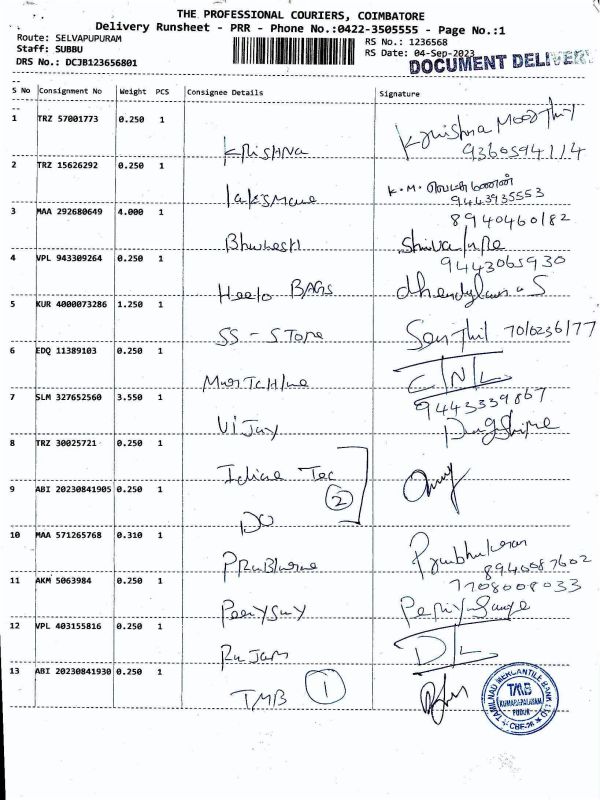 THE PROFESSIONAL COURIERS, COIMBATORE
Delivery Runsheet - PRR - Phone No.:0422-3505555 - Page No.:1
Route: SELVAPUPURAM
Staff: SUBBU
DRS No.: DCJB123656801
RS No.: 1236568
RS Date: 04-Sep-2023
DOCUMENT DELIVER
S No Consignment No Weight PCS Consignee Details Signature
1 TRZ 57001773 0.250 1
Krishna Krishna Moorthy
9360594114
2 TRZ 15626292 0.250 1
K.M.
9443935553
3 MAA 292680649 4.000 1
8940460182
Bhuvanesh
4 VPL 943309264 0.250 1
9443065930
Heelo BAGS
5 KUR 4000073286 1.250 1
SS - STORE Senthil 7010236177
6 EDQ 11389103 0.250 1
C/N/L
7 SLM 327652560 3.550 1
9443339867
Vijay
8 TRZ 30025721 0.250 1
Tec
2
9 ABI 20230841905 0.250 1
DO
10 MAA 571265768 0.310 1
Prabhakaran
8940087602
11 AKM 5063984 0.250 1
7708008033
12 VPL 403155816 0.250 1
Rajam D/L
13 ABI 20230841930 0.250 1
TMB 1
TAMILNAD MERCANTILE BANK
TMB
KUMARAPALAYAM
PUDUR
CBE-26